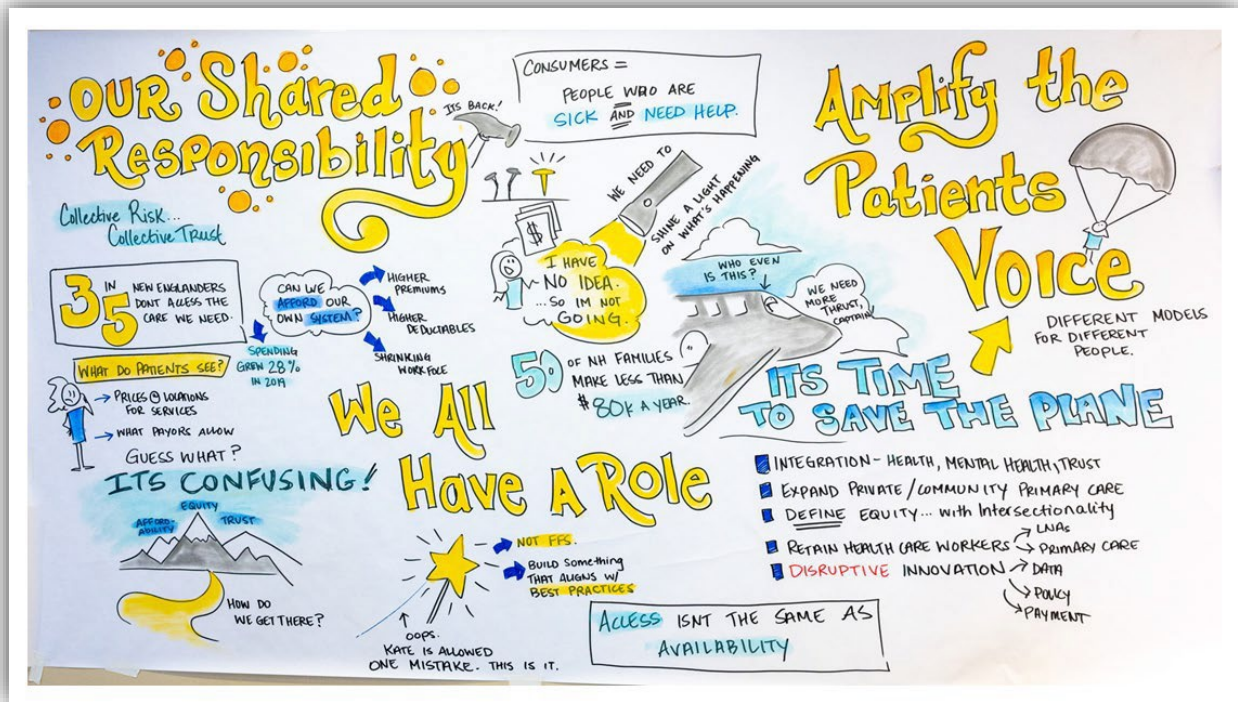 OUR Shared
Responsibility
ITS BACK!
Collective Risk...
Collective Trust
3 IN 5
NEW ENGLANDERS
DONT ACCESS THE
CARE WE NEED.
CAN WE
AFFORD OUR
OWN SYSTEM?
HIGHER
PREMIUMS
HIGHER
DEDUCTABLES
SHRINKING
WORKFOLE
SPENDING
GREW 28%
IN 2019
WHAT DO PATIENTS SEE?
PRICES @ LOCATIONS
FOR SERVICES
WHAT PAYORS ALLOW
GUESS WHAT?
ITS CONFUSING!
AFFORD-
ABILITY
EQUITY
TRUST
HOW DO
WE GET THERE?
CONSUMERS =
PEOPLE WHO ARE
SICK AND NEED HELP.
WE NEED TO
SHINE A LIGHT
ON WHAT'S HAPPENING
$
I HAVE
NO IDEA.
...SO IM NOT
GOING.
50 OF NH FAMILIES
MAKE LESS THAN
$80K A YEAR.
We All
Have A Role
NOT FFS.
BUILD Something
THAT ALIGNS W/
BEST PRACTICES
OOPS.
KATE IS ALLOWED
ONE MISTAKE. THIS IS IT.
ACCESS ISNT THE SAME AS
AVAILABILITY
Amplify the
Patients
Voice
DIFFERENT MODELS
FOR DIFFERENT
PEOPLE.
WHO EVEN
IS THIS?
WE NEED
MORE
THRUST,
CAPTAIN!
ITS TIME
TO SAVE THE PLANE
INTEGRATION - HEALTH, MENTAL HEALTH, TRUST
EXPAND PRIVATE/COMMUNITY PRIMARY CARE
DEFINE EQUITY... with Intersectionality
RETAIN HEALTH CARE WORKERS
LNAs
PRIMARY CARE
DISRUPTIVE INNOVATION
DATA
POLICY
PAYMENT